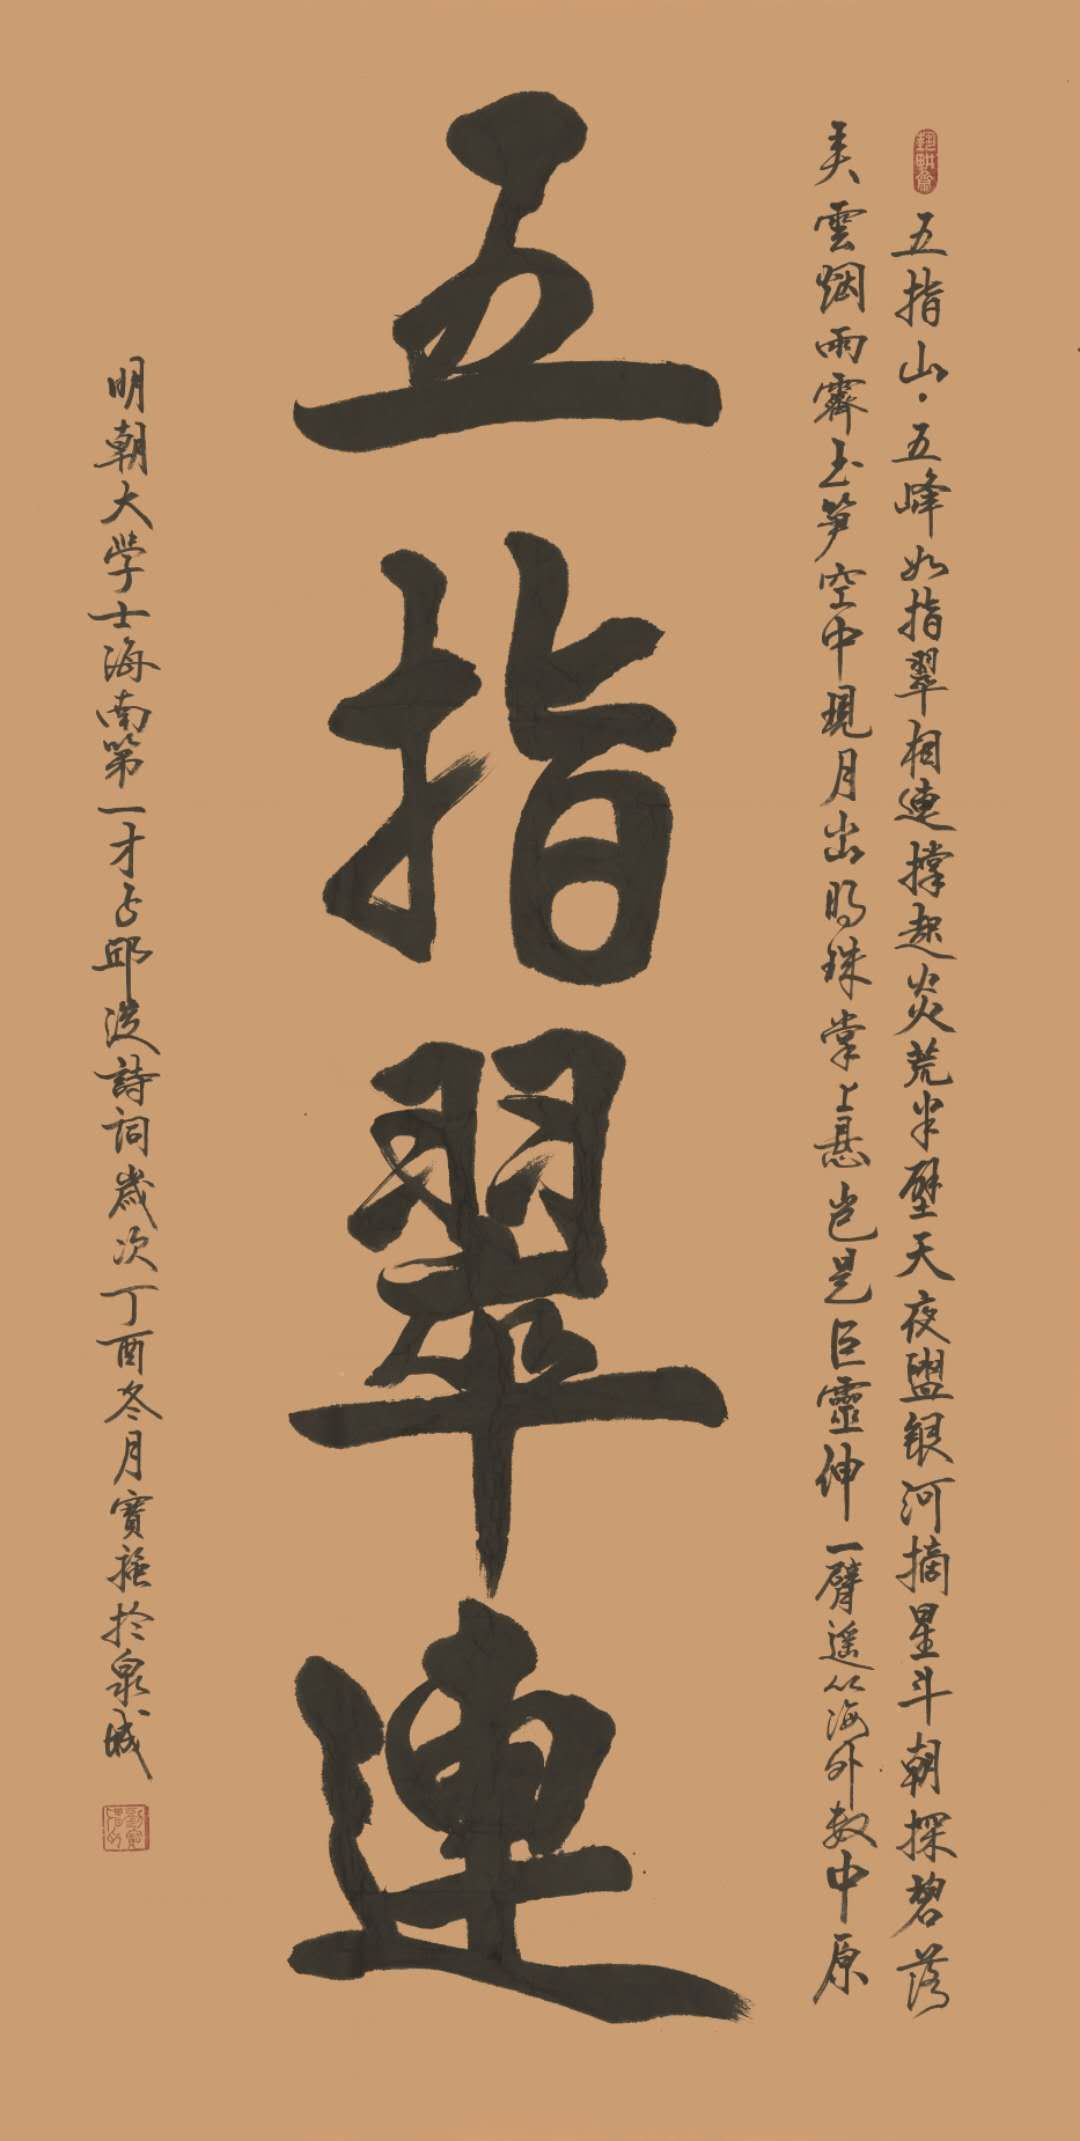 五指山·五峰如指翠相連撑起炎荒半壁天夜盥银河摘星斗朝探碧落
弄雲烟雨霽玉笋空中現月出明珠掌上悬岂是巨靈伸一臂遥从海外数中原
五指翠連
明朝大学士海南第一才子邱浚詩詞歲次丁酉冬月寶於泉城